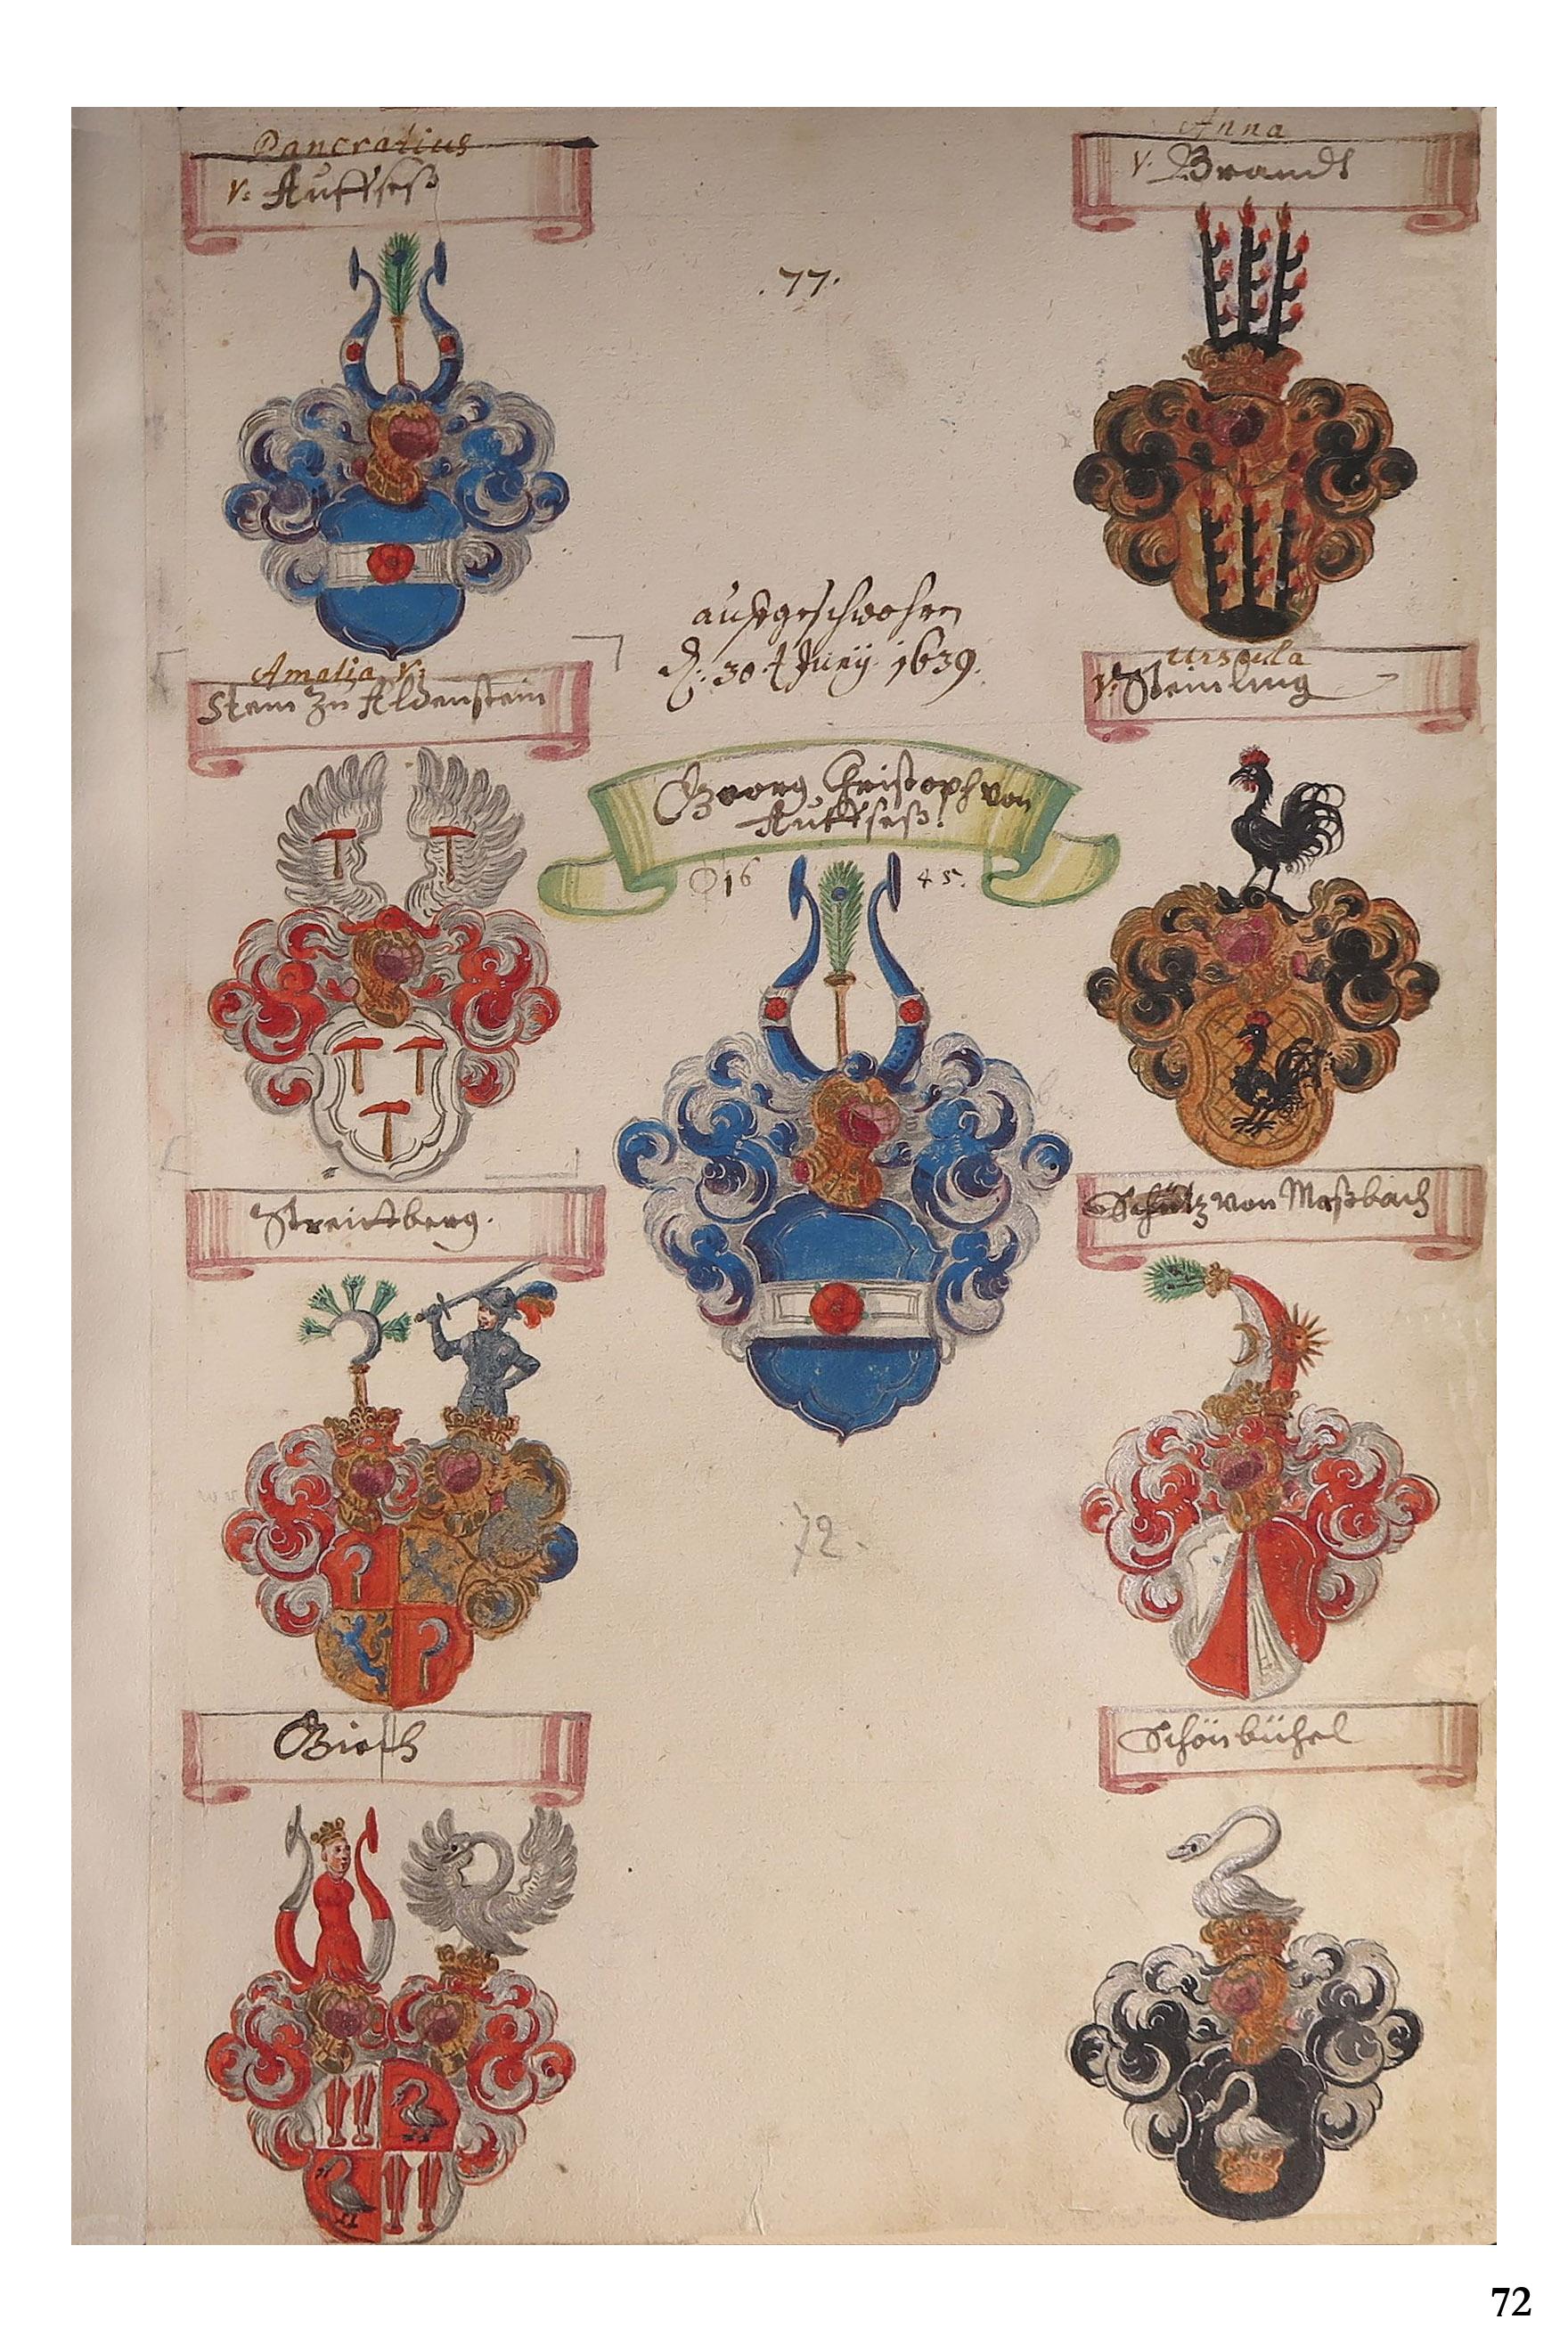 Pancratius
v: Auffseß
Anna
v. Brandt
.77.
auffgeschwohren
d. 30t Junÿ 1639.
Amalia v:
Stein zu Aldenstein
Ursula
v. Steinling
Georg Christoph von
Auffseß.
16 45.
Streittberg.
Schütz von Moßbach
72.
Giech
Schönbühel
72